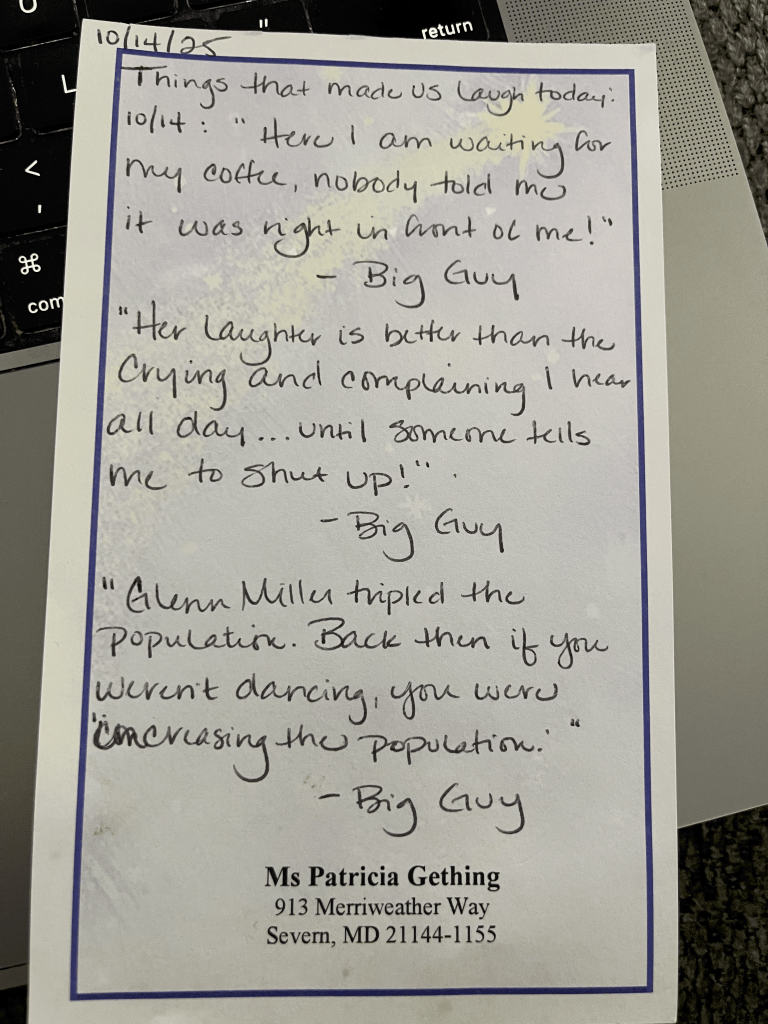 "
return
L
<
,
⌘
com
10/14/25
Things that made us laugh today:
10/14 : "Here I am waiting for
my coffee, nobody told me
it was right in front of me!"
- Big Guy
"Her laughter is better than the
crying and complaining I hear
all day... until someone tells
me to shut up!"
- Big Guy
"Glenn Miller tripled the
population. Back then if you
weren't dancing, you were
'increasing the population.' "
- Big Guy
Ms Patricia Gething
913 Merriweather Way
Severn, MD 21144-1155